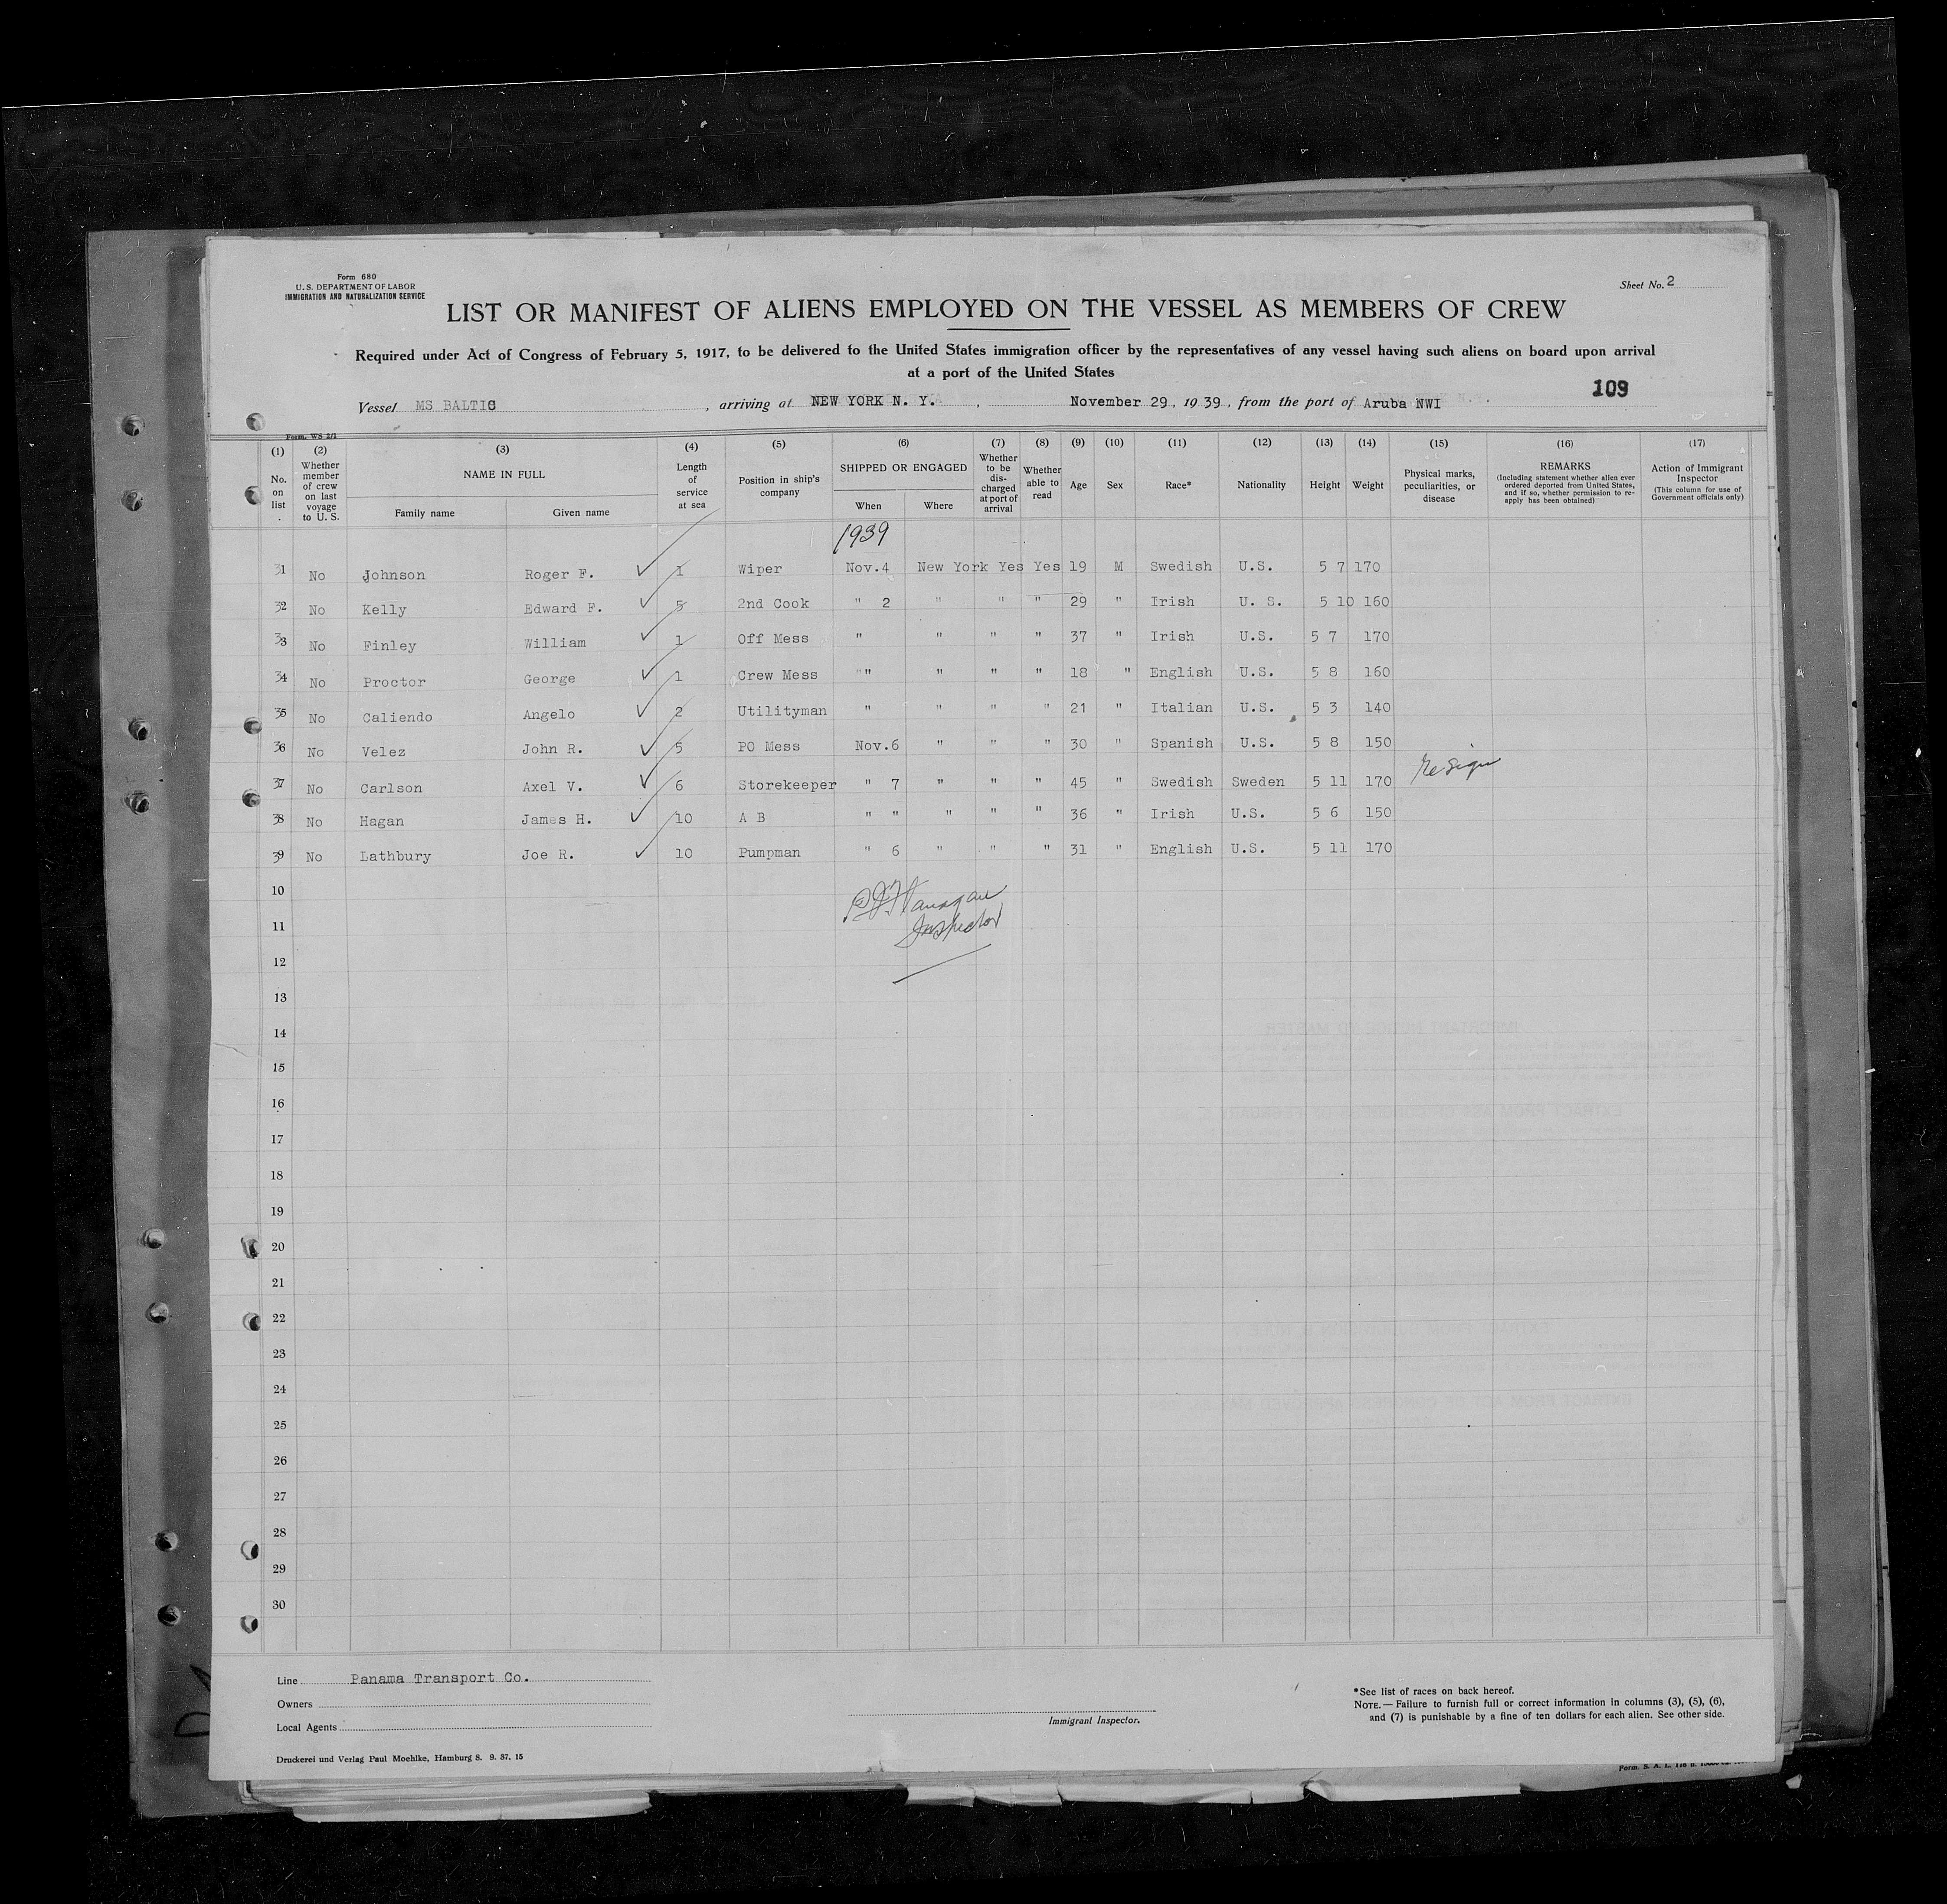 Form 680
U. S. DEPARTMENT OF LABOR
IMMIGRATION AND NATURALIZATION SERVICE
Sheet No. 2
LIST OR MANIFEST OF ALIENS EMPLOYED ON THE VESSEL AS MEMBERS OF CREW
Required under Act of Congress of February 5, 1917, to be delivered to the United States immigration officer by the representatives of any vessel having such aliens on board upon arrival
at a port of the United States
109
Vessel MS BALTIC , arriving at NEW YORK N. Y. , November 29, 19 39, from the port of Aruba NWI
Form. WS 2/1
(1) (2) (3) (4) (5) (6) (7) (8) (9) (10) (11) (12) (13) (14) (15) (16) (17)
No. on list
Whether member of crew on last voyage to U. S.
NAME IN FULL
Family name Given name
Length of service at sea
Position in ship's company
SHIPPED OR ENGAGED
When Where
Whether to be discharged at port of arrival
Whether able to read
Age
Sex
Race*
Nationality
Height
Weight
Physical marks, peculiarities, or disease
REMARKS
(Including statement whether alien ever ordered deported from United States, and if so, whether permission to re-apply has been obtained)
Action of Immigrant Inspector
(This column for use of Government officials only)
1939
31 No Johnson Roger F. ✓ 1 Wiper Nov.4 New York Yes Yes 19 M Swedish U.S. 5 7 170
32 No Kelly Edward F. ✓ 5 2nd Cook " 2 " " " 29 " Irish U. S. 5 10 160
33 No Finley William ✓ 1 Off Mess " " " " 37 " Irish U.S. 5 7 170
34 No Proctor George ✓ 1 Crew Mess "" " " " 18 " English U.S. 5 8 160
35 No Caliendo Angelo ✓ 2 Utilityman " " " " 21 " Italian U.S. 5 3 140
36 No Velez John R. ✓ 5 PO Mess Nov.6 " " " 30 " Spanish U.S. 5 8 150
37 No Carlson Axel V. ✓ 6 Storekeeper " 7 " " " 45 " Swedish Sweden 5 11 170
38 No Hagan James H. ✓ 10 A B " " " " " 36 " Irish U.S. 5 6 150
39 No Lathbury Joe R. ✓ 10 Pumpman " 6 " " " 31 " English U.S. 5 11 170
10
11 Inspector
12
13
14
15
16
17
18
19
20
21
22
23
24
25
26
27
28
29
30
Line Panama Transport Co.
Owners
Local Agents
Immigrant Inspector.
*See list of races on back hereof.
NOTE.—Failure to furnish full or correct information in columns (3), (5), (6),
and (7) is punishable by a fine of ten dollars for each alien. See other side.
Druckerei und Verlag Paul Moehlke, Hamburg 8. 9. 37. 15